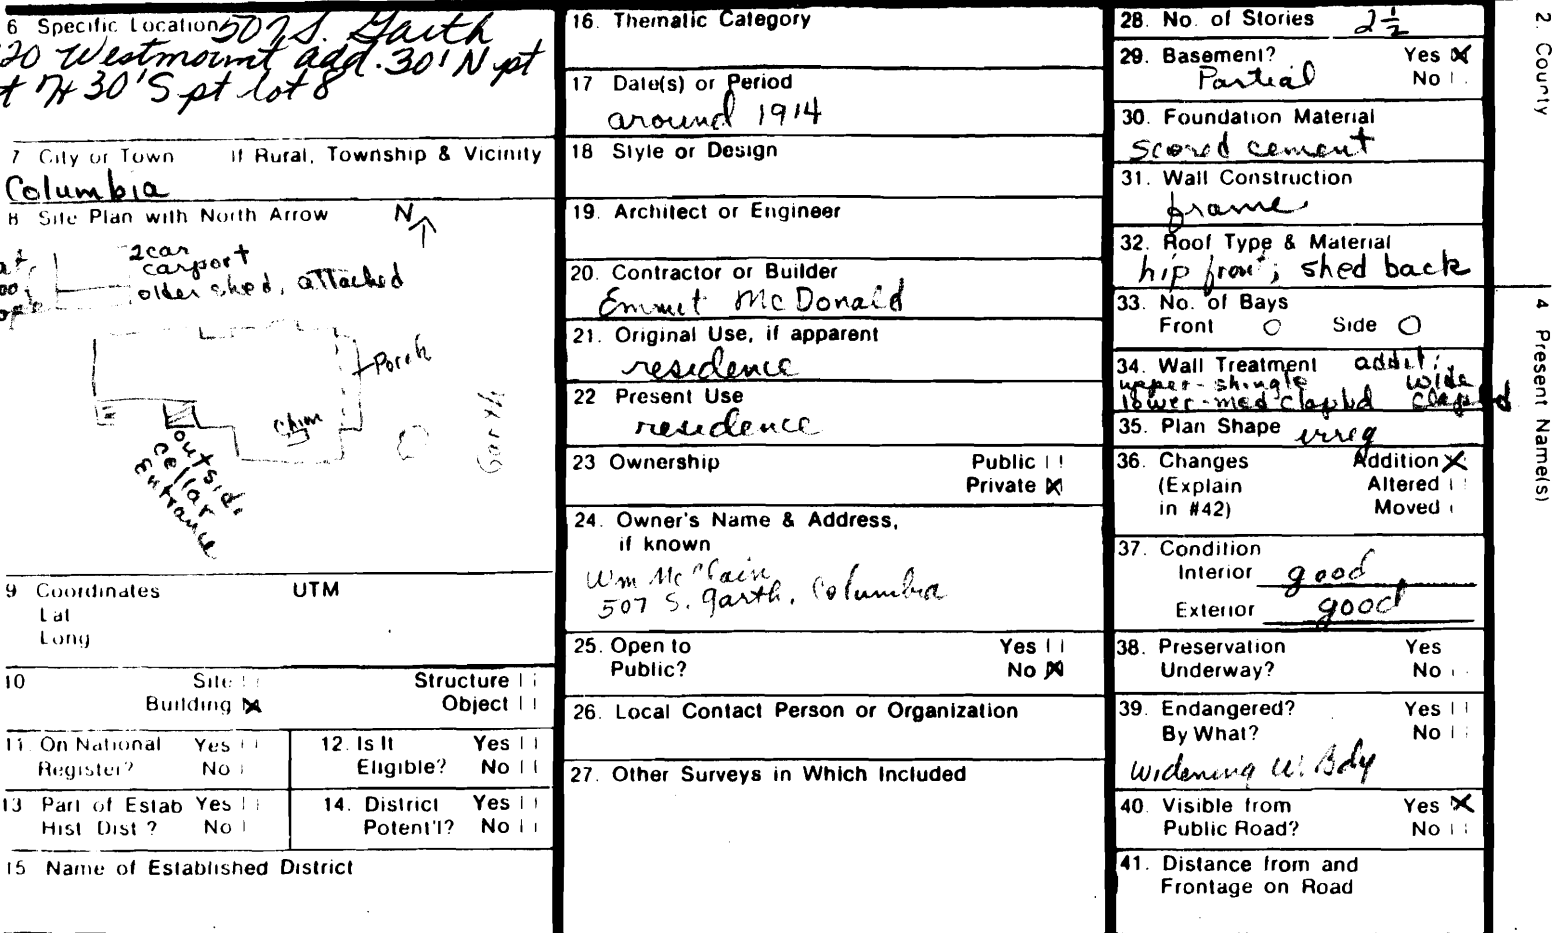 6 Specific Location 507 S. Garth
20 Westmount add. 30' N pt
30' S pt lot 8
7 City or Town If Rural, Township & Vicinity
Columbia
8 Site Plan with North Arrow N
2 car
carport
older shed, attached
Porch
Chim
outside
cellar
Entrance
9 Coordinates UTM
Lat
Long
10 Site Structure
Building X Object
11. On National Register? Yes No
12. Is It Eligible? Yes No
13 Part of Estab Hist Dist? Yes No
14. District Potent'l? Yes No
15 Name of Established District
16. Thematic Category
17 Date(s) or Period
around 1914
18 Style or Design
19. Architect or Engineer
20. Contractor or Builder
Emmet McDonald
21. Original Use, if apparent
residence
22 Present Use
residence
23 Ownership Public
Private X
24. Owner's Name & Address,
if known
Wm
507 S. Garth, Columbia
25. Open to Yes
Public? No X
26. Local Contact Person or Organization
27. Other Surveys in Which Included
28. No. of Stories 2 1/2
29. Basement? Yes X
Partial No
30. Foundation Material
scored cement
31. Wall Construction
frame
32. Roof Type & Material
hip front; shed back
33. No. of Bays
Front O Side O
34. Wall Treatment addit:
upper-shingle wide
lower-med clapbd clapbd
35. Plan Shape irreg
36. Changes Addition X
(Explain Altered
in #42) Moved
37. Condition
Interior good
Exterior good
38. Preservation Yes
Underway? No
39. Endangered? Yes
By What? No
Widening W. Bdy
40. Visible from Yes X
Public Road? No
41. Distance from and
Frontage on Road
2. County
4 Present Name(s)